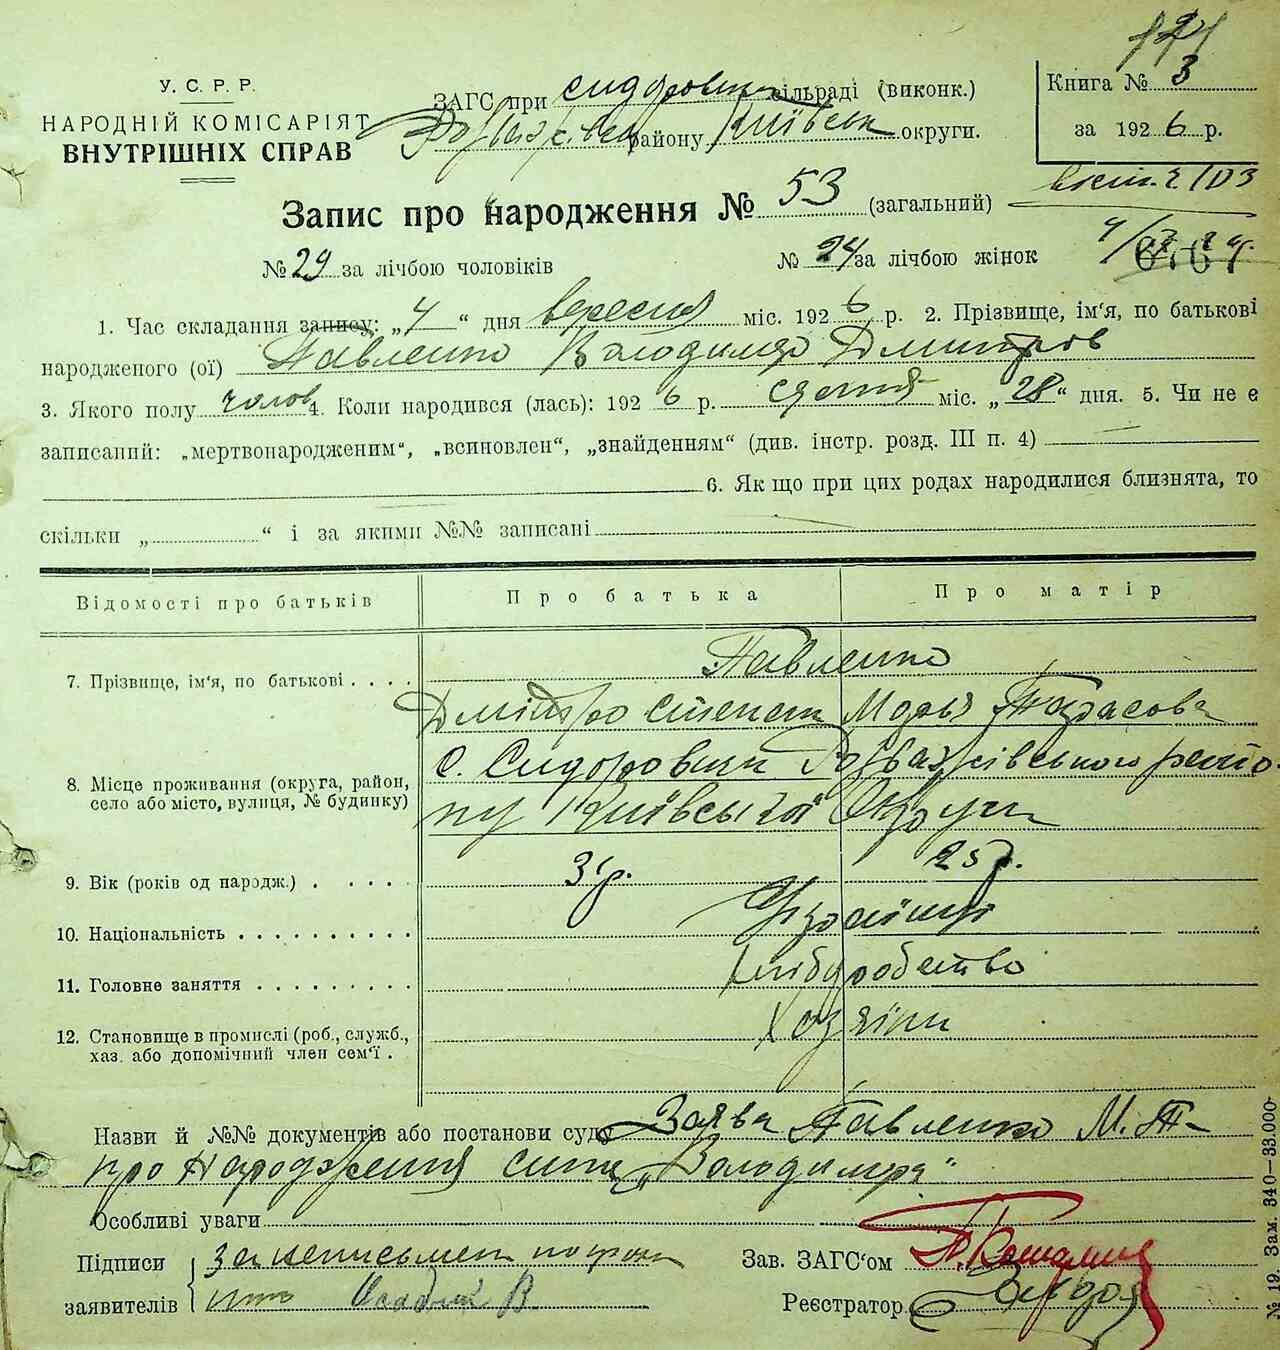 121
У. С. Р. Р.
НАРОДНІЙ КОМІСАРІЯТ
ВНУТРІШНІХ СПРАВ
ЗАГС при сидорович сільраді (виконк.)
району Київськ округи.
Книга № 3
за 1926 р.
Запис про народження № 53 (загальний)
№ 29 за лічбою чоловіків № 24 за лічбою жінок
1. Час складання запису: „4“ дня вересня міс. 1926 р. 2. Прізвище, ім'я, по батькові
народженого (ої) Павленко Володимір Дмитров
3. Якого полу чолов 4. Коли народився (лась): 1926 р. серпня міс. „28“ дня. 5. Чи не є
записаний: „мертвонародженим“, „всиновлен“, „знайденням“ (див. інстр. розд. III п. 4)
6. Як що при цих родах народилися близнята, то
скільки „ “ і за якими №№ записані
Відомості про батьків Про батька Про матір
7. Прізвище, ім'я, по батькові Павленко
Дмітро Степан Марья Тарасова
8. Місце проживання (округа, район,
село або місто, вулиця, № будинку)
С. Сидоровичи Розважівського райо-
ну Київської Округи
9. Вік (років од народж.) 31 р. 25 р.
10. Національність Українці
11. Головне заняття хліборобство
12. Становище в промислі (роб., служб.,
хаз. або допомічний член сем'ї. Хазяїни
Назви й №№ документів або постанови суду Заява Павленко М. Т.
про народження сина „Володимира“
Особливі уваги
Підписи
заявителів
За неписьмен
Осадчий В.
Зав. ЗАГС'ом
Реєстратор
№ 19. Зам. 340—33.000